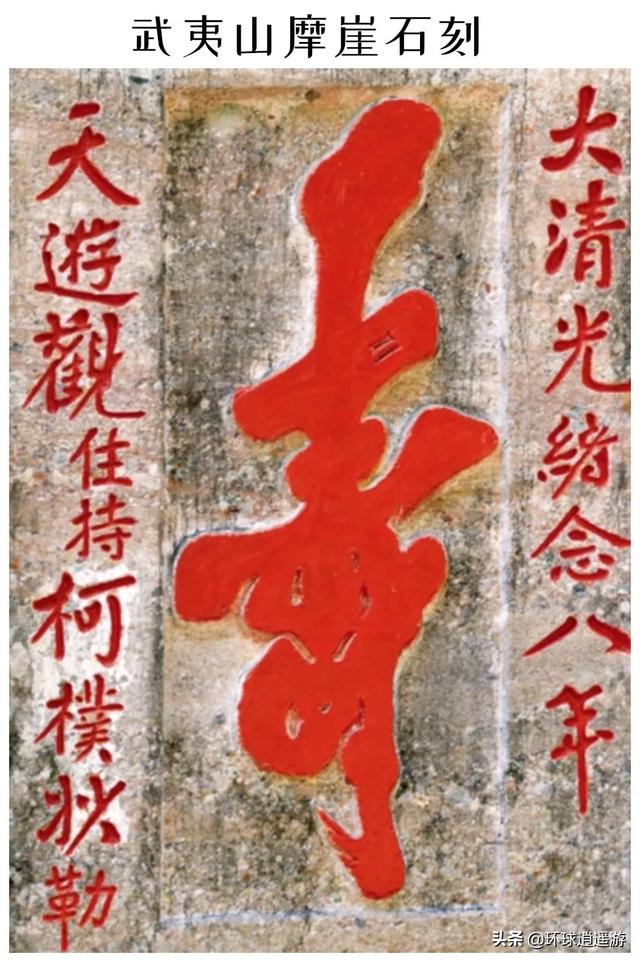 武夷山摩崖石刻
大清光緒念八年
壽
天遊觀住持柯樸勒
头条 @环球逍遥游